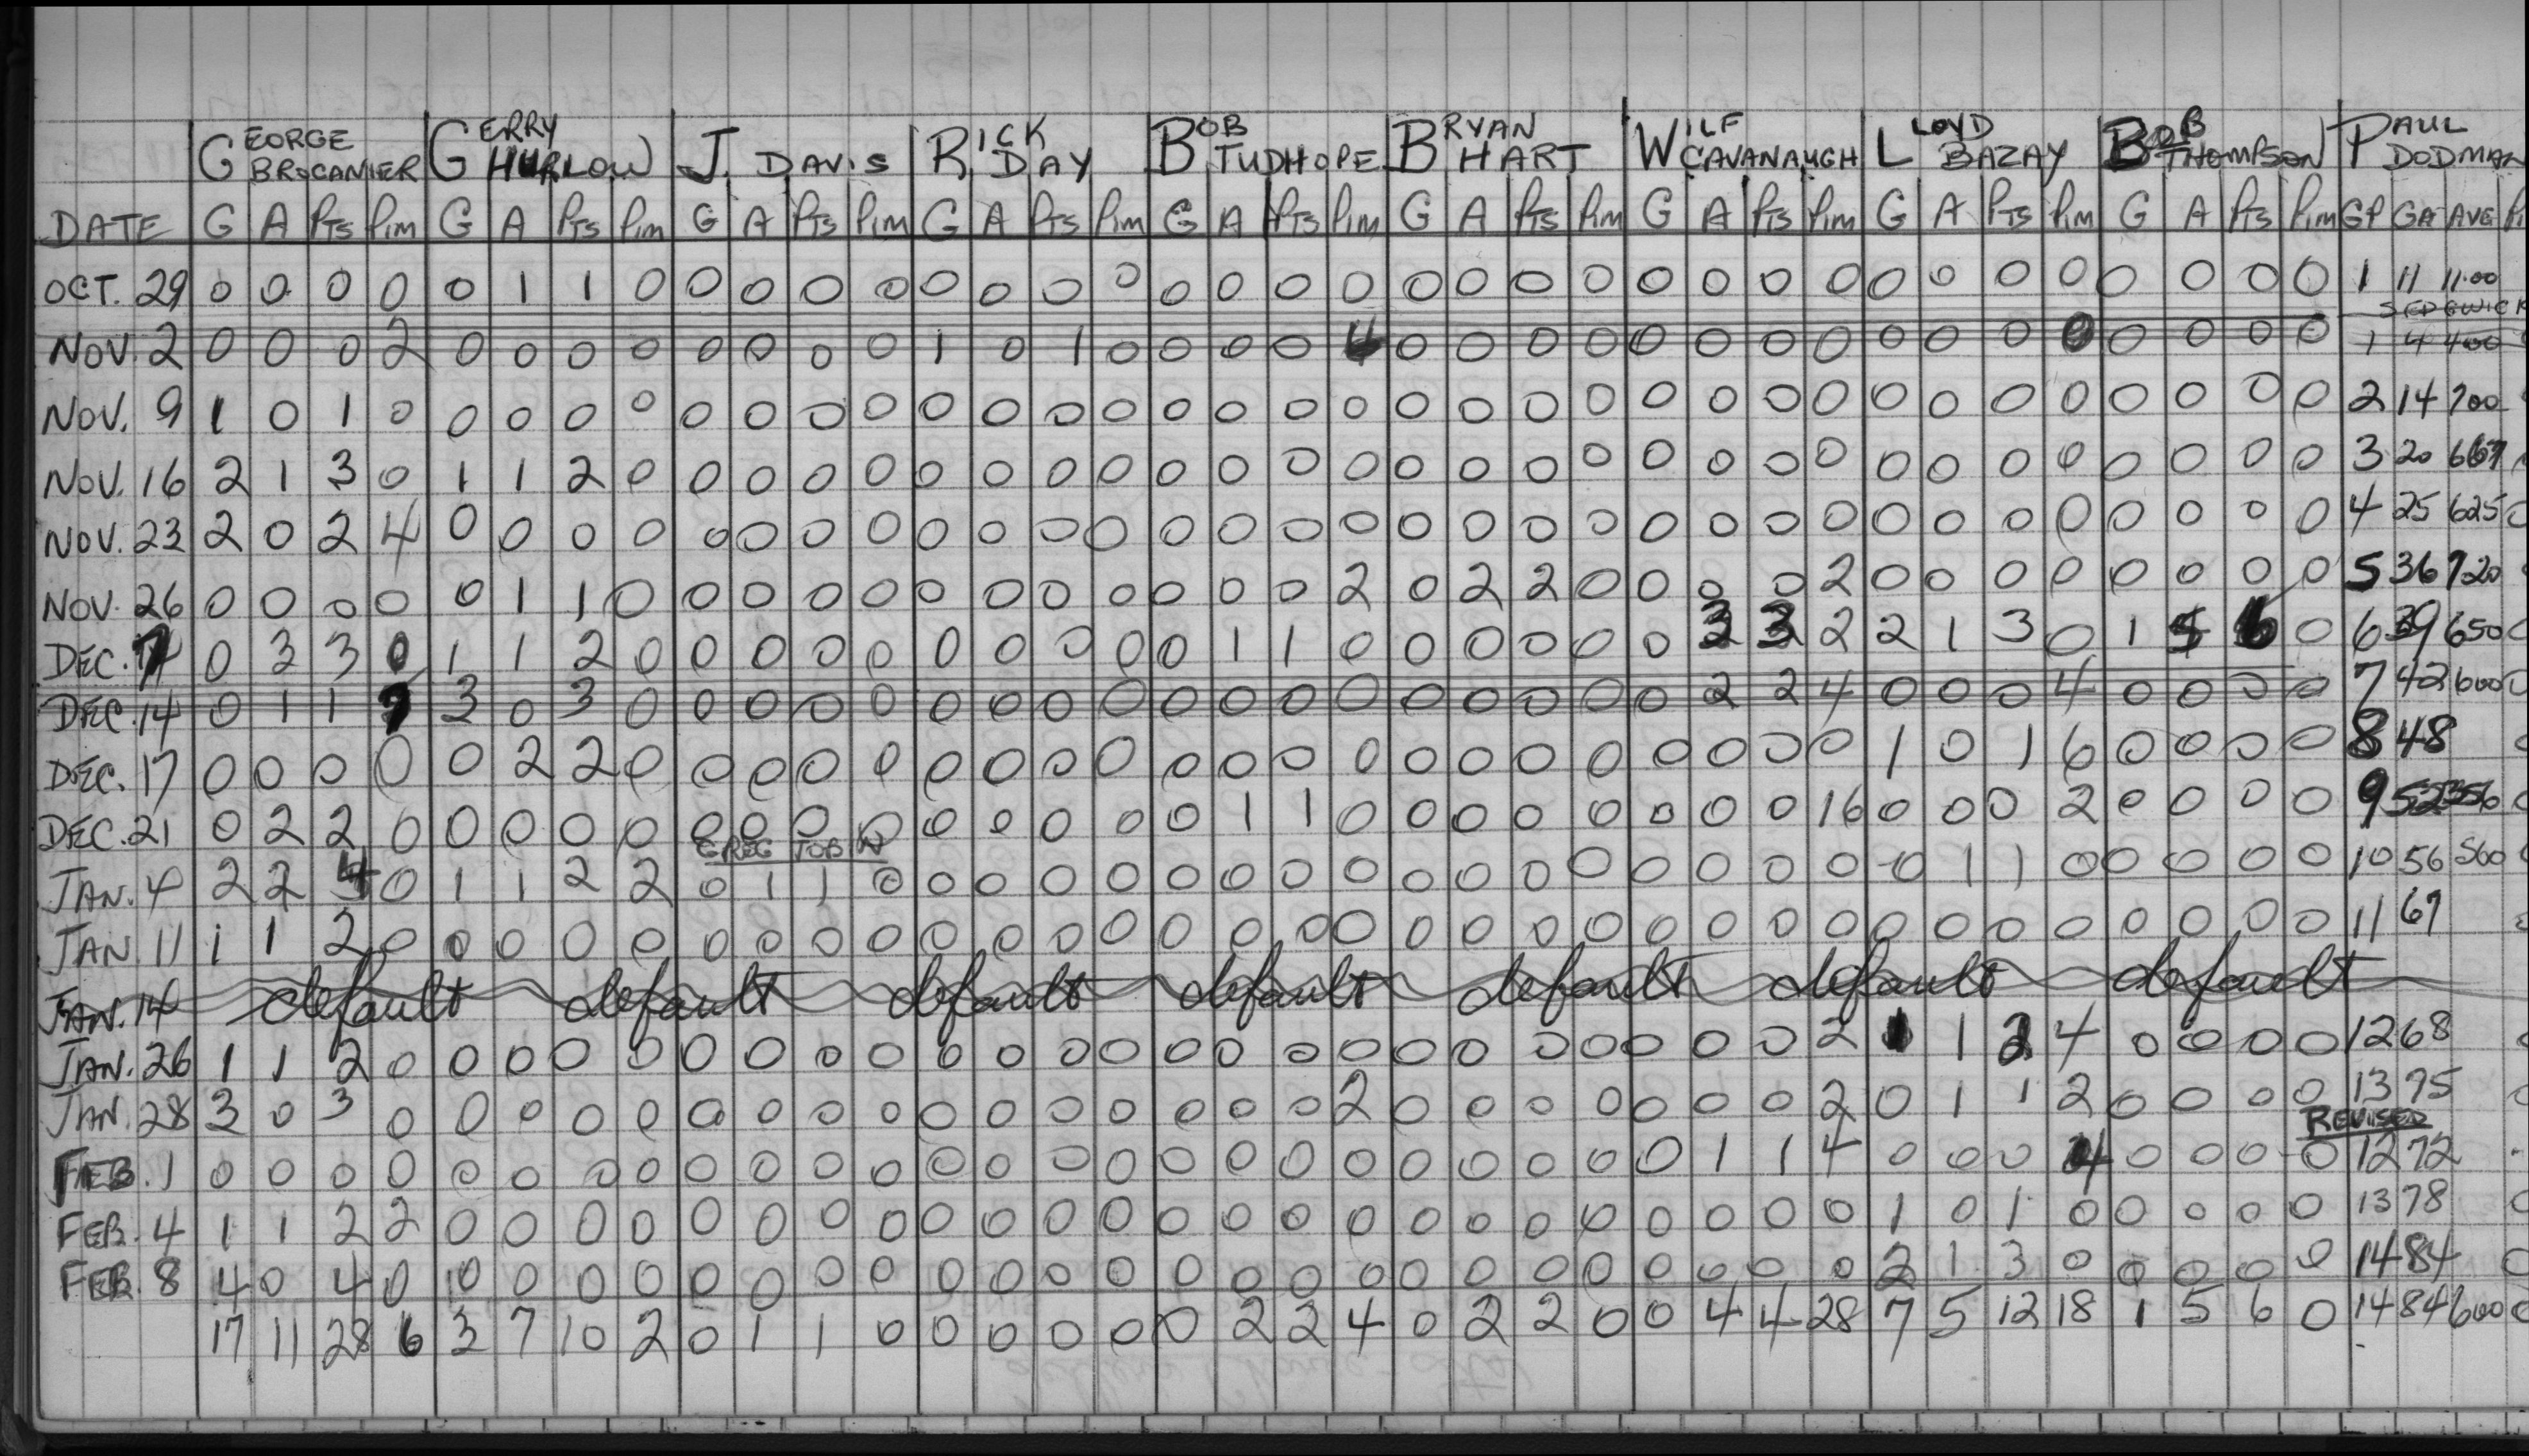 GEORGE BROCANIER GERRY HURLOW J. DAVIS RICK DAY BOB TUDHOPE BRYAN HART WILF CAVANAUGH LLOYD BAZAY BOB THOMPSON PAUL DODMAN
DATE G A PTS PIM G A PTS PIM G A PTS PIM G A PTS PIM G A PTS PIM G A PTS PIM G A PTS PIM G A PTS PIM G A PTS PIM GP GA AVG
OCT. 29 0 0 0 0 0 1 1 0 0 0 0 0 0 0 0 0 0 0 0 0 0 0 0 0 0 0 0 0 0 0 0 0 0 0 0 0 1 11 11.00
SEDGWICK
NOV. 2 0 0 0 2 0 0 0 0 0 0 0 0 1 0 1 0 0 0 0 4 0 0 0 0 0 0 0 0 0 0 0 0 0 0 0 0 1 4 400
NOV. 9 1 0 1 0 0 0 0 0 0 0 0 0 0 0 0 0 0 0 0 0 0 0 0 0 0 0 0 0 0 0 0 0 0 0 0 0 2 14 700
NOV. 16 2 1 3 0 1 1 2 0 0 0 0 0 0 0 0 0 0 0 0 0 0 0 0 0 0 0 0 0 0 0 0 0 0 0 0 0 3 20 667
NOV. 23 2 0 2 4 0 0 0 0 0 0 0 0 0 0 0 0 0 0 0 0 0 0 0 0 0 0 0 0 0 0 0 0 0 0 0 0 4 25 625
NOV. 26 0 0 0 0 0 1 1 0 0 0 0 0 0 0 0 0 0 0 0 2 0 2 2 0 0 0 0 2 0 0 0 0 0 0 0 0 5 36 720
DEC. 7 0 3 3 0 1 1 2 0 0 0 0 0 0 0 0 0 0 1 1 0 0 0 0 0 0 3 3 2 2 1 3 0 1 5 6 0 6 39 650
DEC. 14 0 1 1 3 0 3 0 0 0 0 0 0 0 0 0 0 0 0 0 0 0 0 0 0 2 2 4 0 0 0 4 0 0 0 0 7 42 600
DEC. 17 0 0 0 0 0 2 2 0 0 0 0 0 0 0 0 0 0 0 0 0 0 0 0 0 0 0 0 0 1 0 1 6 0 0 0 0 8 48
DEC. 21 0 2 2 0 0 0 0 0 0 0 0 0 0 0 0 0 0 1 1 0 0 0 0 0 0 0 0 16 0 0 0 2 0 0 0 0 9 52
GREG TOBIN
JAN. 4 2 2 4 0 1 1 2 2 0 1 1 0 0 0 0 0 0 0 0 0 0 0 0 0 0 0 0 0 0 1 1 0 0 0 0 0 10 56 560
JAN. 11 1 1 2 0 0 0 0 0 0 0 0 0 0 0 0 0 0 0 0 0 0 0 0 0 0 0 0 0 0 0 0 0 0 0 0 0 11 67
JAN. 14 default default default default default default default
JAN. 26 1 1 2 0 0 0 0 0 0 0 0 0 0 0 0 0 0 0 0 0 0 0 0 0 0 0 0 2 1 1 2 4 0 0 0 0 12 68
JAN. 28 3 0 3 0 0 0 0 0 0 0 0 0 0 0 0 0 0 0 0 2 0 0 0 0 0 0 0 2 0 1 1 2 0 0 0 0 13 75
REVISED
FEB. 1 0 0 0 0 0 0 0 0 0 0 0 0 0 0 0 0 0 0 0 0 0 0 0 0 0 1 1 4 0 0 0 4 0 0 0 0 12 72
FEB. 4 1 1 2 2 0 0 0 0 0 0 0 0 0 0 0 0 0 0 0 0 0 0 0 0 0 0 0 0 1 0 1 0 0 0 0 0 13 78
FEB. 8 4 0 4 0 0 0 0 0 0 0 0 0 0 0 0 0 0 0 0 0 0 0 0 0 0 0 0 0 2 1 3 0 0 0 0 0 14 84
17 11 28 6 3 7 10 2 0 1 1 0 0 0 0 0 0 2 2 4 0 2 2 0 0 4 4 28 7 5 12 18 1 5 6 0 14 84 600